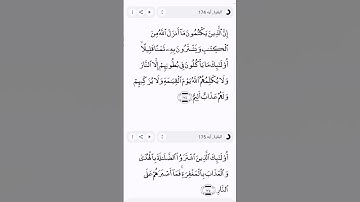 البقرة، آية 174
إِنَّ ٱلَّذِينَ يَكْتُمُونَ مَآ أَنزَلَ ٱللَّهُ مِنَ
ٱلْكِتَٰبِ وَيَشْتَرُونَ بِهِۦ ثَمَنًا قَلِيلًا
أُو۟لَٰٓئِكَ مَا يَأْكُلُونَ فِى بُطُونِهِمْ إِلَّا ٱلنَّارَ
وَلَا يُكَلِّمُهُمُ ٱللَّهُ يَوْمَ ٱلْقِيَٰمَةِ وَلَا يُزَكِّيهِمْ
وَلَهُمْ عَذَابٌ أَلِيمٌ
البقرة، آية 175
أُو۟لَٰٓئِكَ ٱلَّذِينَ ٱشْتَرَوُا۟ ٱلضَّلَٰلَةَ بِٱلْهُدَىٰ
وَٱلْعَذَابَ بِٱلْمَغْفِرَةِ ۚ فَمَآ أَصْبَرَهُمْ عَلَى
ٱلنَّارِ